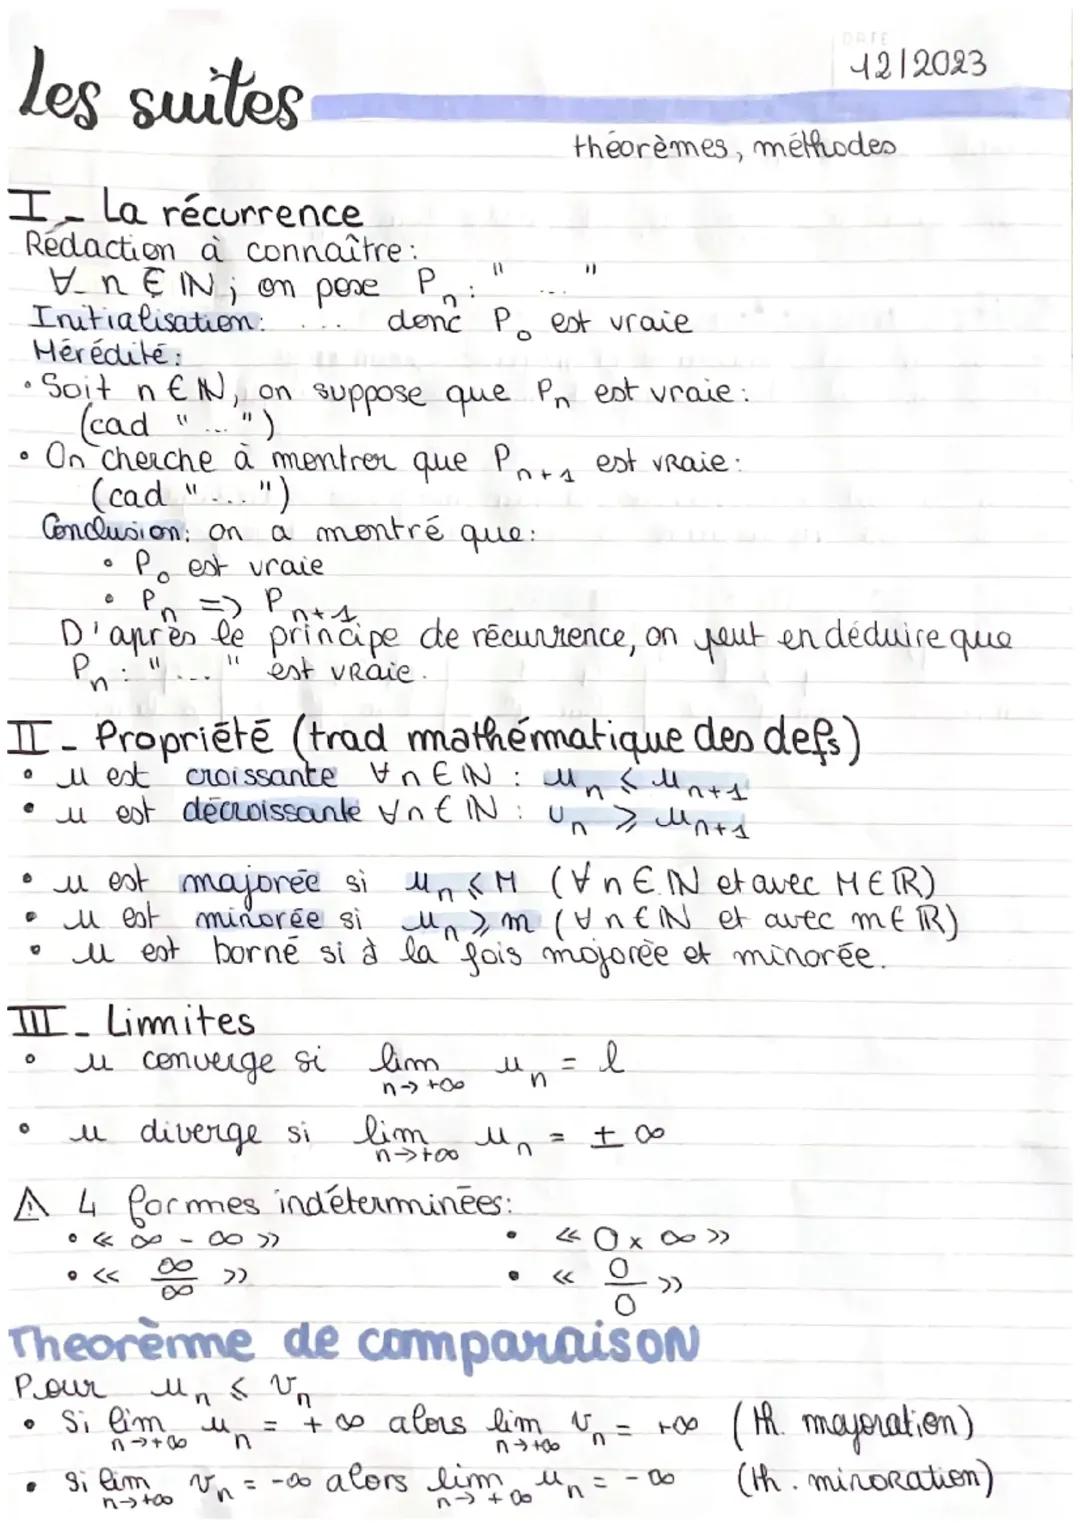 DATE
12/2023
Les suites
théorèmes, méthodes
I - La récurrence
Rédaction à connaître :
∀ n ∈ ℕ ; on pose Pₙ : " ... "
Initialisation : ... donc P₀ est vraie
Hérédité :
• Soit n ∈ ℕ, on suppose que Pₙ est vraie :
(cad " ... ")
• On cherche à montrer que Pₙ₊₁ est vraie :
(cad " ... ")
Conclusion : on a montré que :
• P₀ est vraie
• Pₙ => Pₙ₊₁
D'après le principe de récurrence, on peut en déduire que
Pₙ : " ... " est vraie.
II - Propriété (trad mathématique des defs)
• u est croissante ∀n ∈ ℕ : uₙ ⩽ uₙ₊₁
• u est décroissante ∀n ∈ ℕ : uₙ ⩾ uₙ₊₁
• u est majorée si uₙ ⩽ M (∀ n ∈ ℕ et avec M ∈ ℝ)
• u est minorée si uₙ ⩾ m (∀ n ∈ ℕ et avec m ∈ ℝ)
• u est borné si à la fois majorée et minorée.
III - Limites
• u converge si lim uₙ = l
n→+∞
• u diverge si lim uₙ = ± ∞
n→+∞
⚠ 4 formes indéterminées :
• « ∞ - ∞ » • « 0 × ∞ »
• « ∞/∞ » • « 0/0 »
Theorème de comparaison
Pour uₙ ⩽ vₙ
• Si lim uₙ = +∞ alors lim vₙ = +∞ (th. majoration)
n→+∞ n→+∞
• Si lim vₙ = -∞ alors lim uₙ = -∞ (th. minoration)
n→+∞ n→+∞